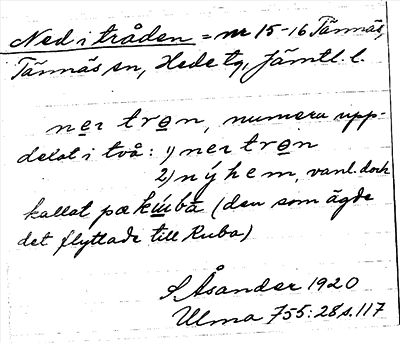 Ned i tråden = nr 15-16 Tännäs,
Tännäs sn, Hede tg, Jämtl. l.
ner tron, numera upp-
delat i två: 1) ner tron
2) nýhem, vanl. doch
kallat pæ kúba (den som ägde
det flyttade till Kuba)
S Åsander 1920
Ulma 755:28 s. 117